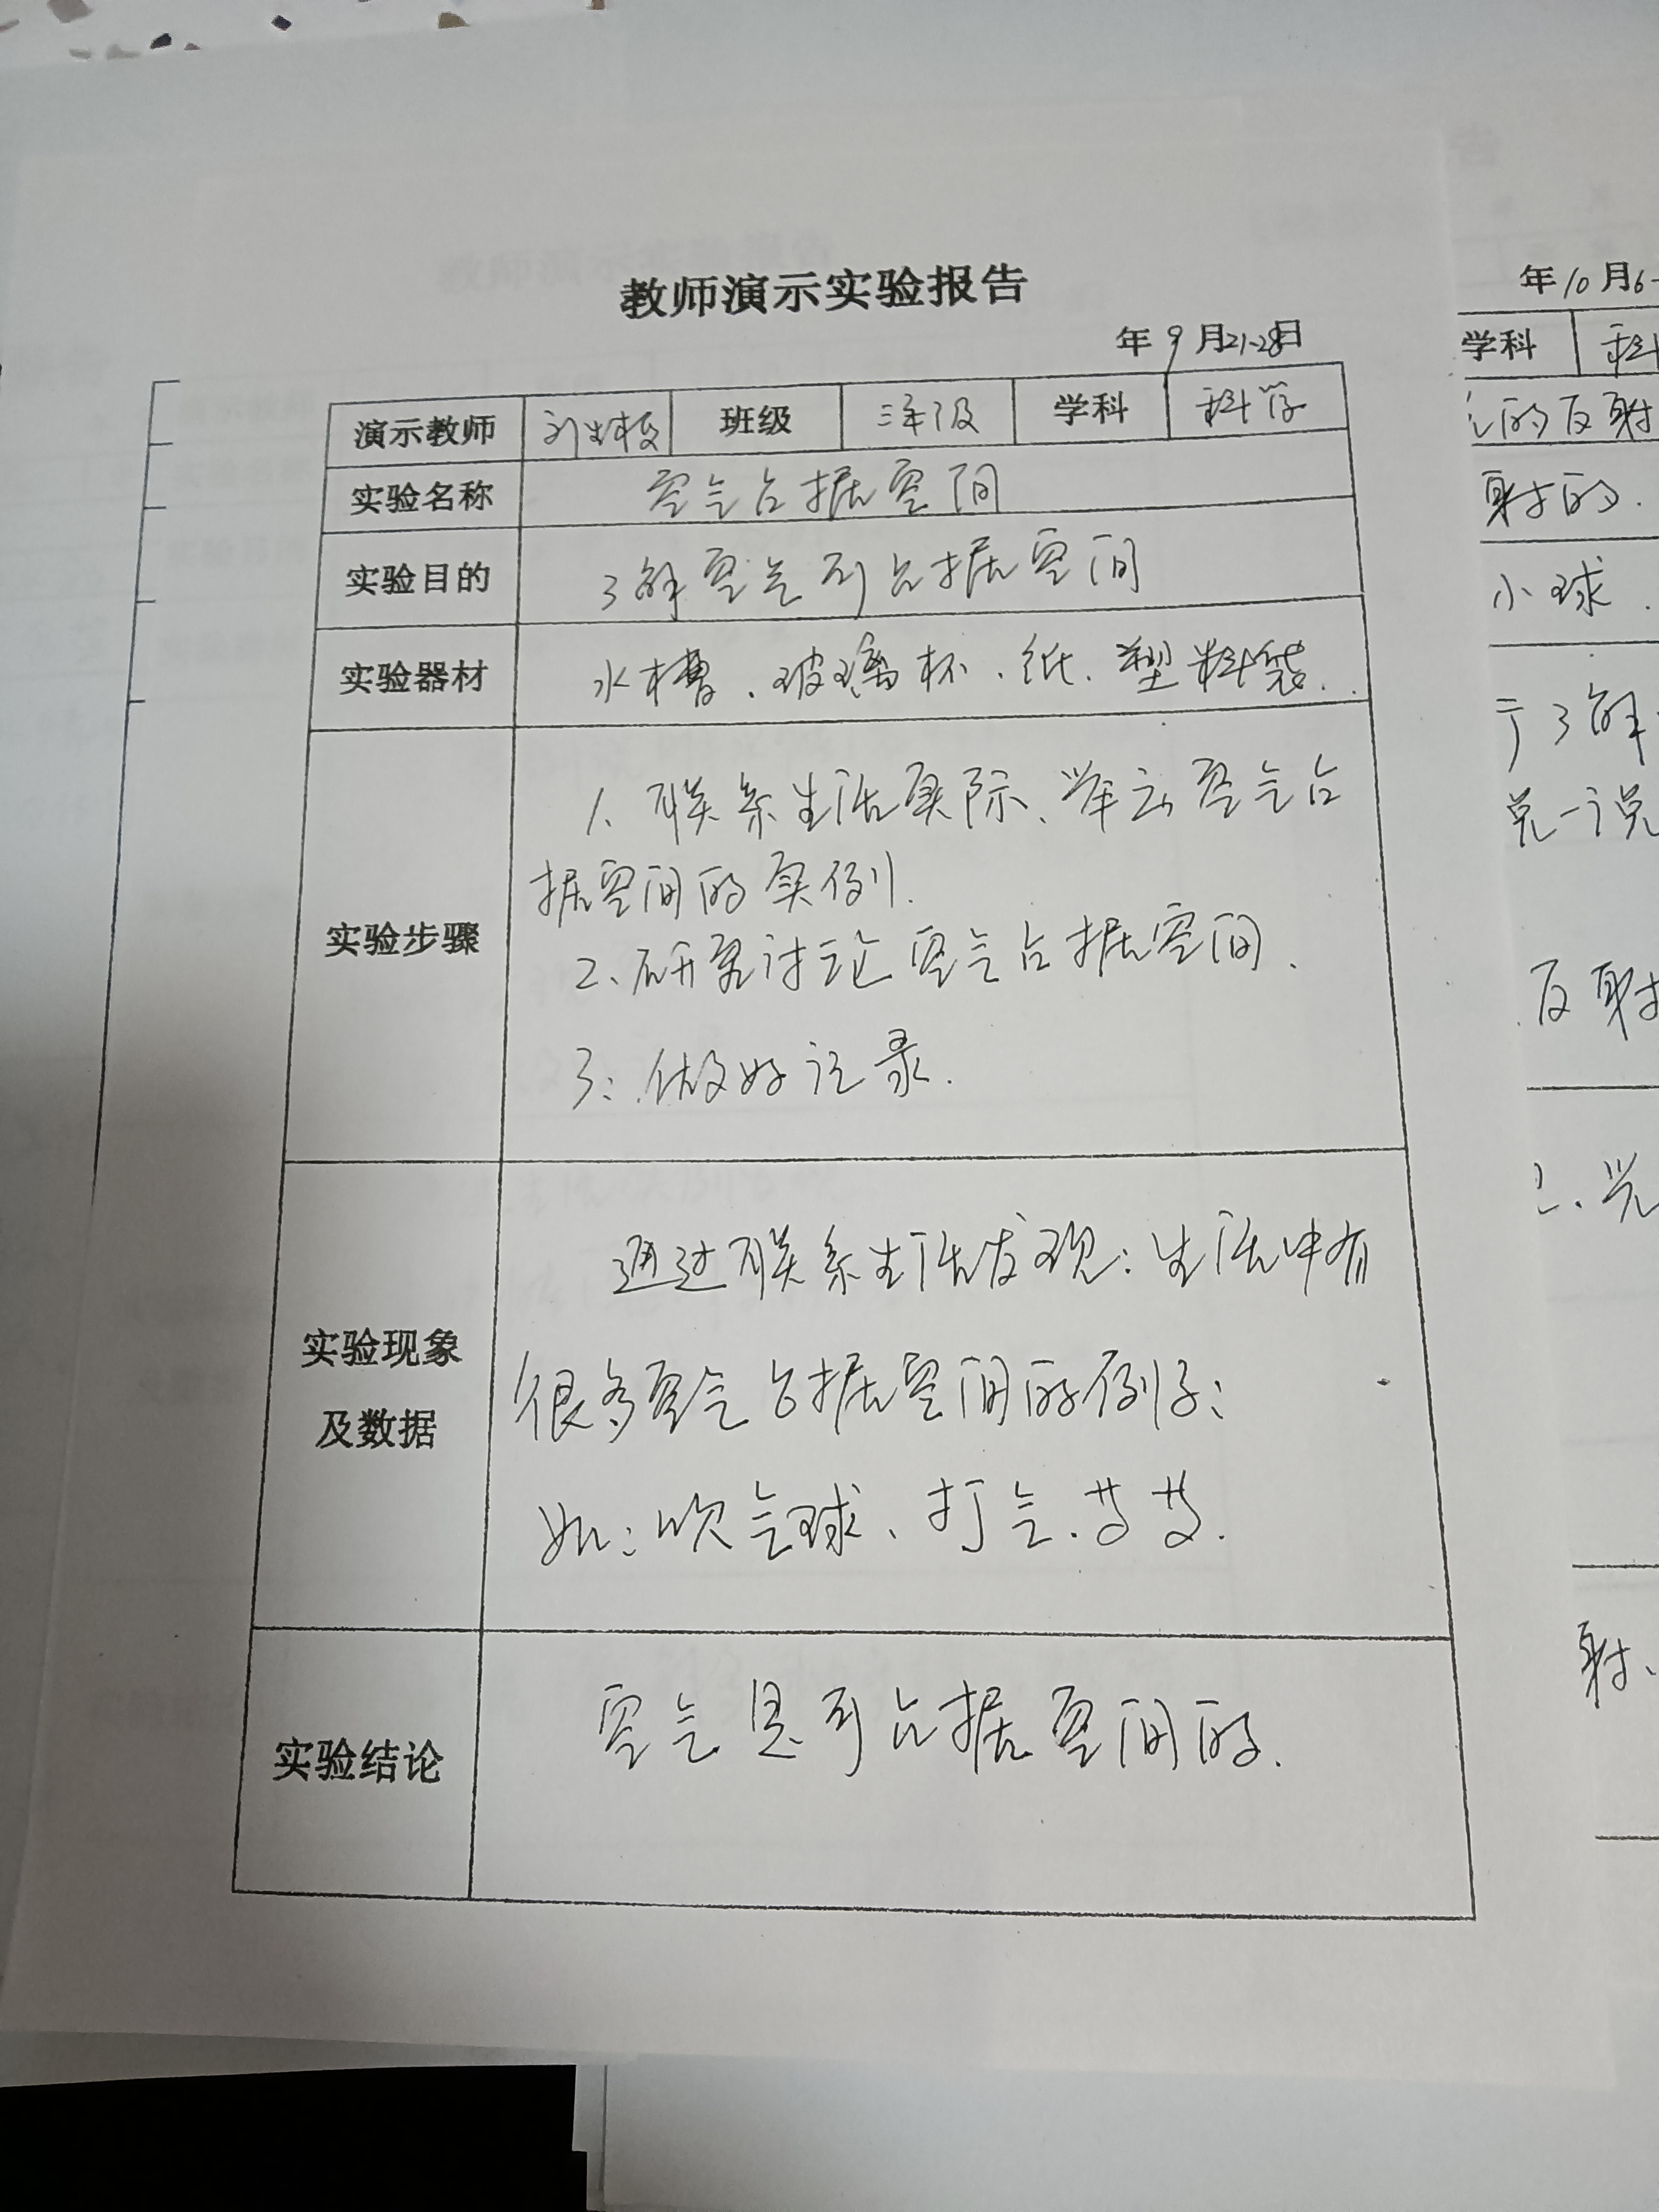 教师演示实验报告
年9月21-28日
演示教师 班级 三年级 学科 科学
实验名称 空气占据空间
实验目的 了解空气可占据空间
实验器材 水槽、玻璃杯、纸、塑料袋.
实验步骤
1、联系生活实际、举云空气占
据空间的实例.
2、研究讨论空气占据空间.
3、做好记录.
实验现象
及数据
通过联系生活发现:生活中有
很多空气占据空间的例子:
如:吹气球、打气、艹艹.
实验结论 空气是可占据空间的.
年10月6-
学科 科
的反射
射的.
小球.
了解
说一说
反射
光
射、